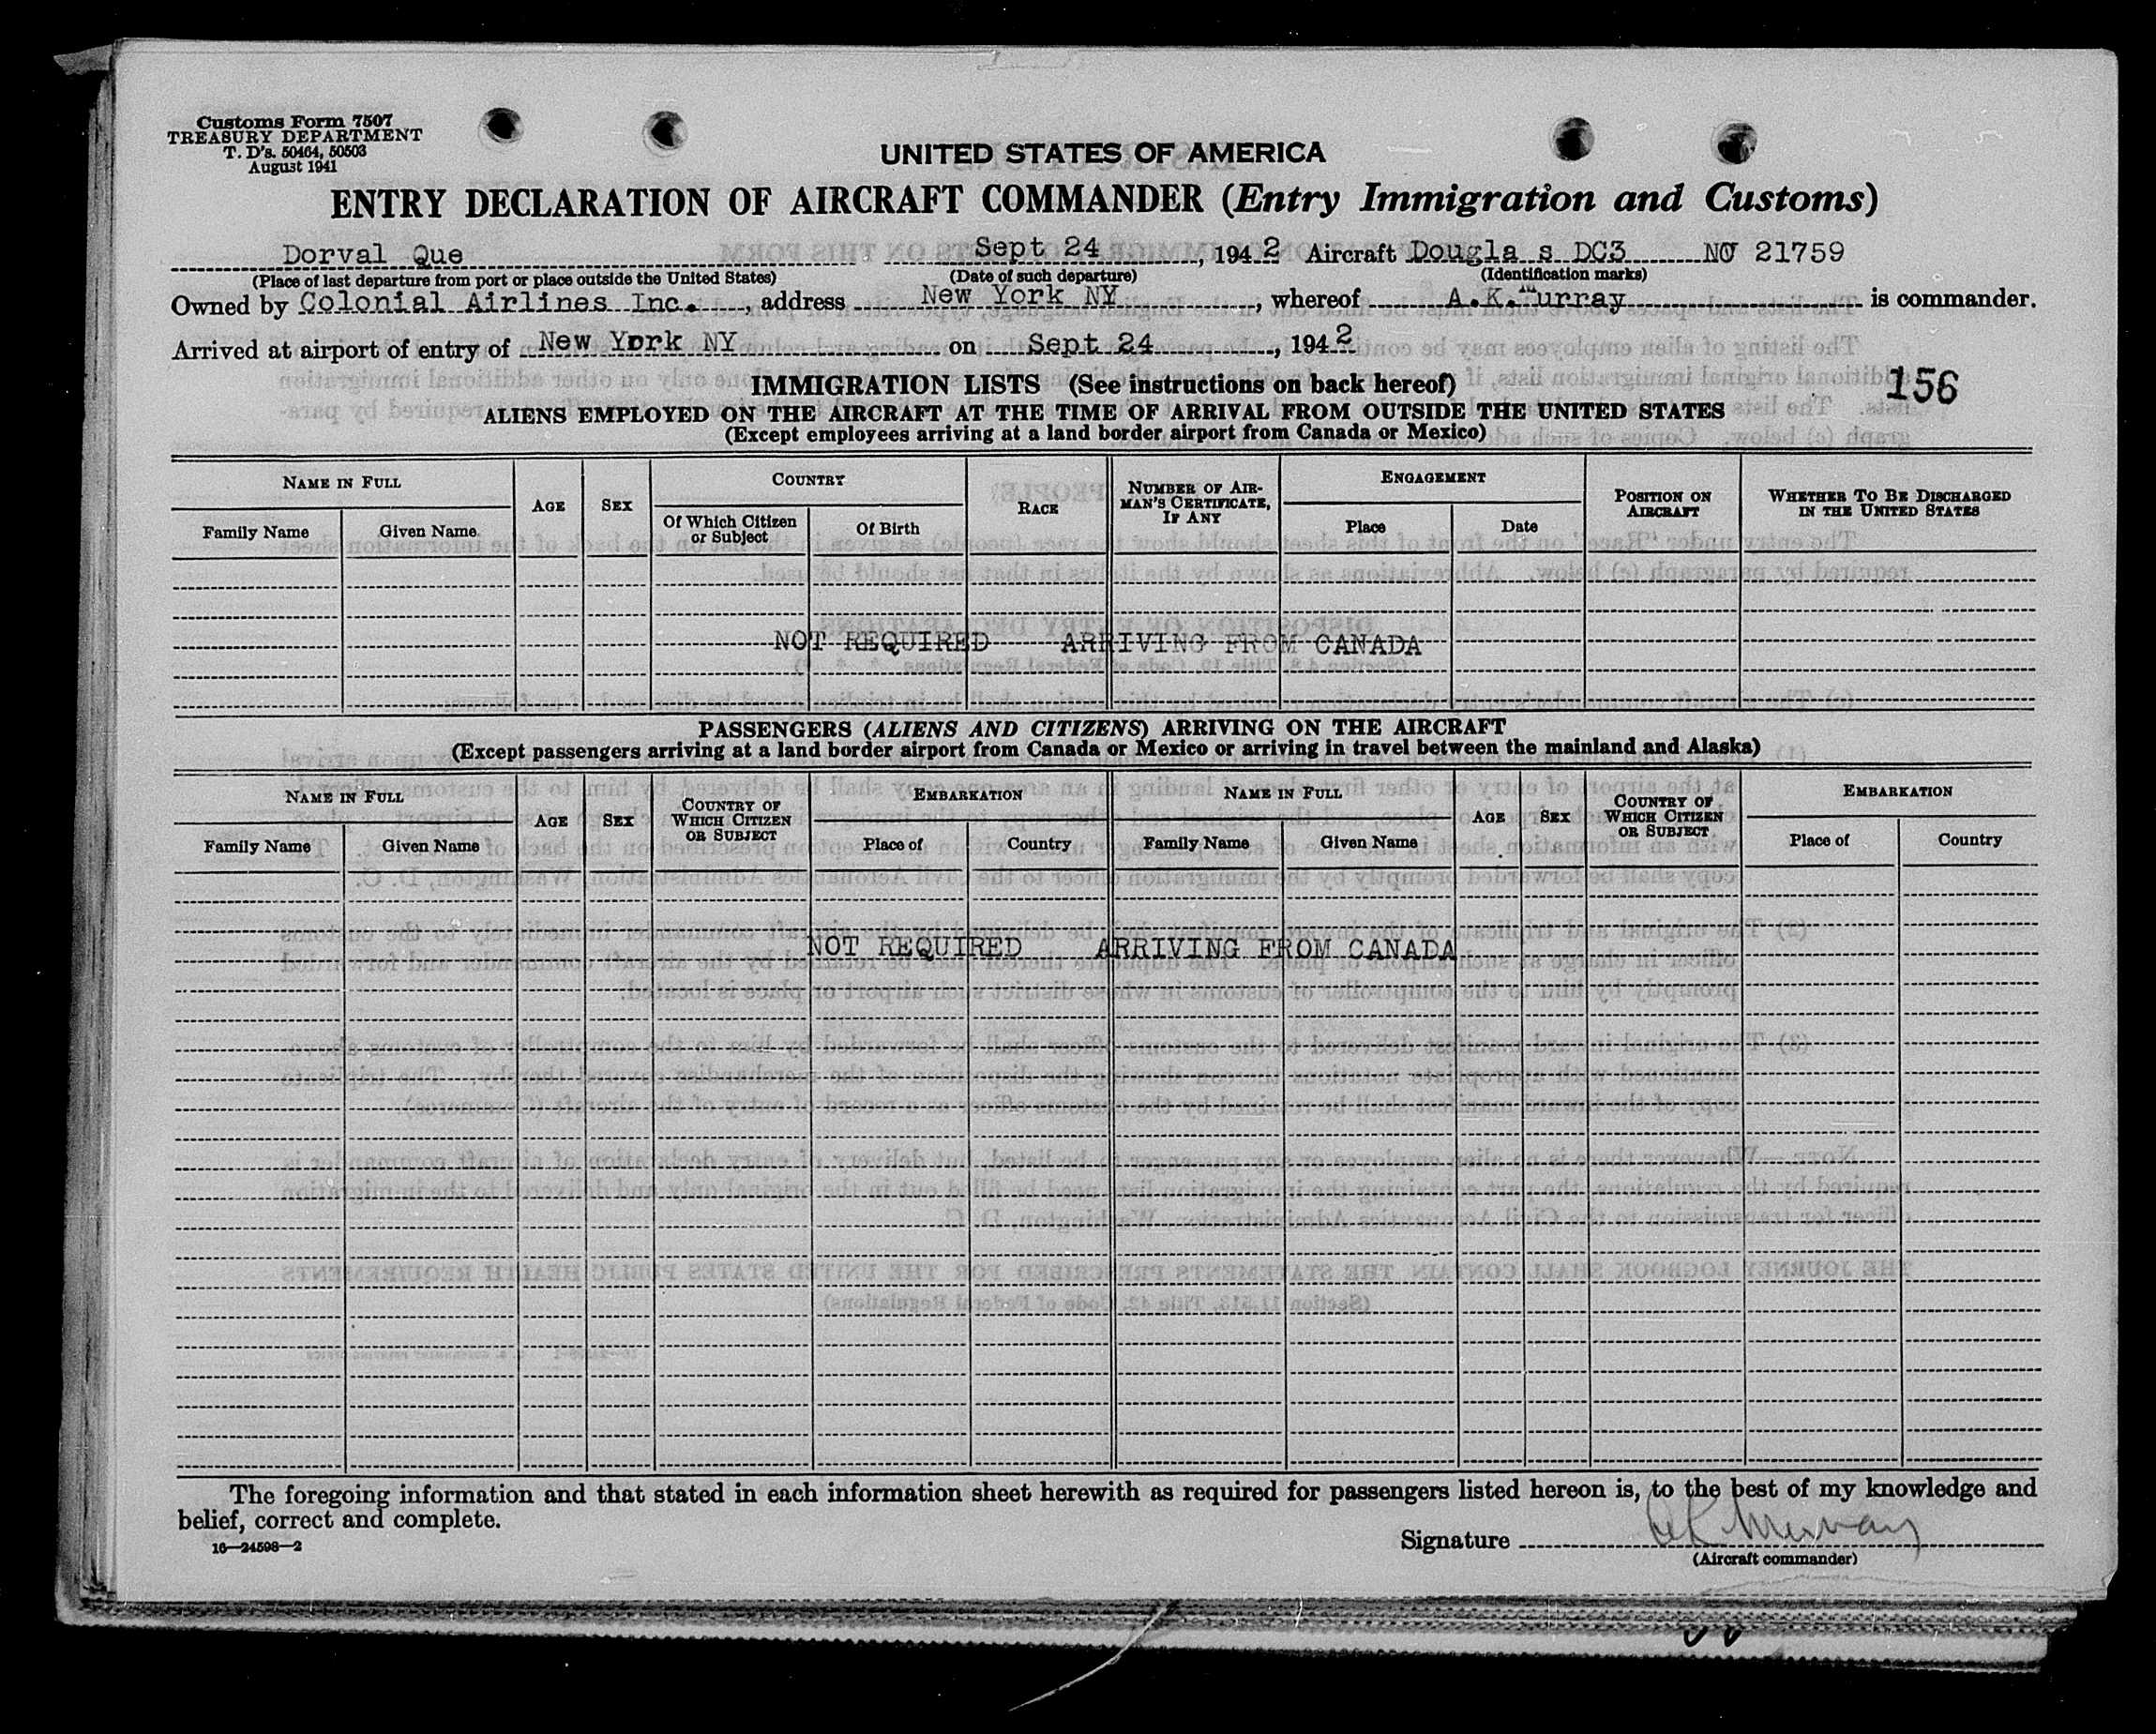 Customs Form 7507
TREASURY DEPARTMENT
T. D's. 50464, 50503
August 1941
UNITED STATES OF AMERICA
ENTRY DECLARATION OF AIRCRAFT COMMANDER (Entry Immigration and Customs)
Dorval Que Sept 24, 1942 Aircraft Dougla s DC3 NC 21759
(Place of last departure from port or place outside the United States) (Date of such departure) (Identification marks)
Owned by Colonial Airlines Inc., address New York NY, whereof A.K.Murray is commander.
Arrived at airport of entry of New York NY on Sept 24, 1942
IMMIGRATION LISTS (See instructions on back hereof)
156
ALIENS EMPLOYED ON THE AIRCRAFT AT THE TIME OF ARRIVAL FROM OUTSIDE THE UNITED STATES
(Except employees arriving at a land border airport from Canada or Mexico)
NAME IN FULL AGE SEX COUNTRY RACE NUMBER OF AIRMAN'S CERTIFICATE, IF ANY ENGAGEMENT POSITION ON AIRCRAFT WHETHER TO BE DISCHARGED IN THE UNITED STATES
Family Name Given Name Of Which Citizen or Subject Of Birth Place Date
NOT REQUIRED ARRIVING FROM CANADA
PASSENGERS (ALIENS AND CITIZENS) ARRIVING ON THE AIRCRAFT
(Except passengers arriving at a land border airport from Canada or Mexico or arriving in travel between the mainland and Alaska)
NAME IN FULL AGE SEX COUNTRY OF WHICH CITIZEN OR SUBJECT EMBARKATION NAME IN FULL AGE SEX COUNTRY OF WHICH CITIZEN OR SUBJECT EMBARKATION
Family Name Given Name Place of Country Family Name Given Name Place of Country
NOT REQUIRED ARRIVING FROM CANADA
The foregoing information and that stated in each information sheet herewith as required for passengers listed hereon is, to the best of my knowledge and
belief, correct and complete.
16—24598—2
Signature AK Murray
(Aircraft commander)